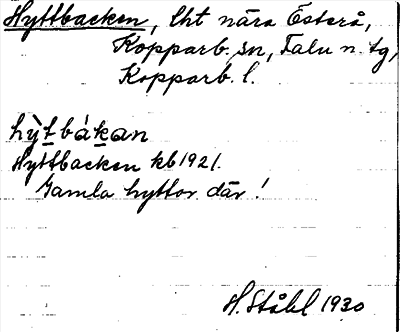 Hyttbacken, lht nära Österå,
Kopparb. sn, Falu n. tg,
Kopparb. l.
hỳtbákan
Hyttbacken kb 1921.
Gamla hyttor där!
H. Ståhl 1930